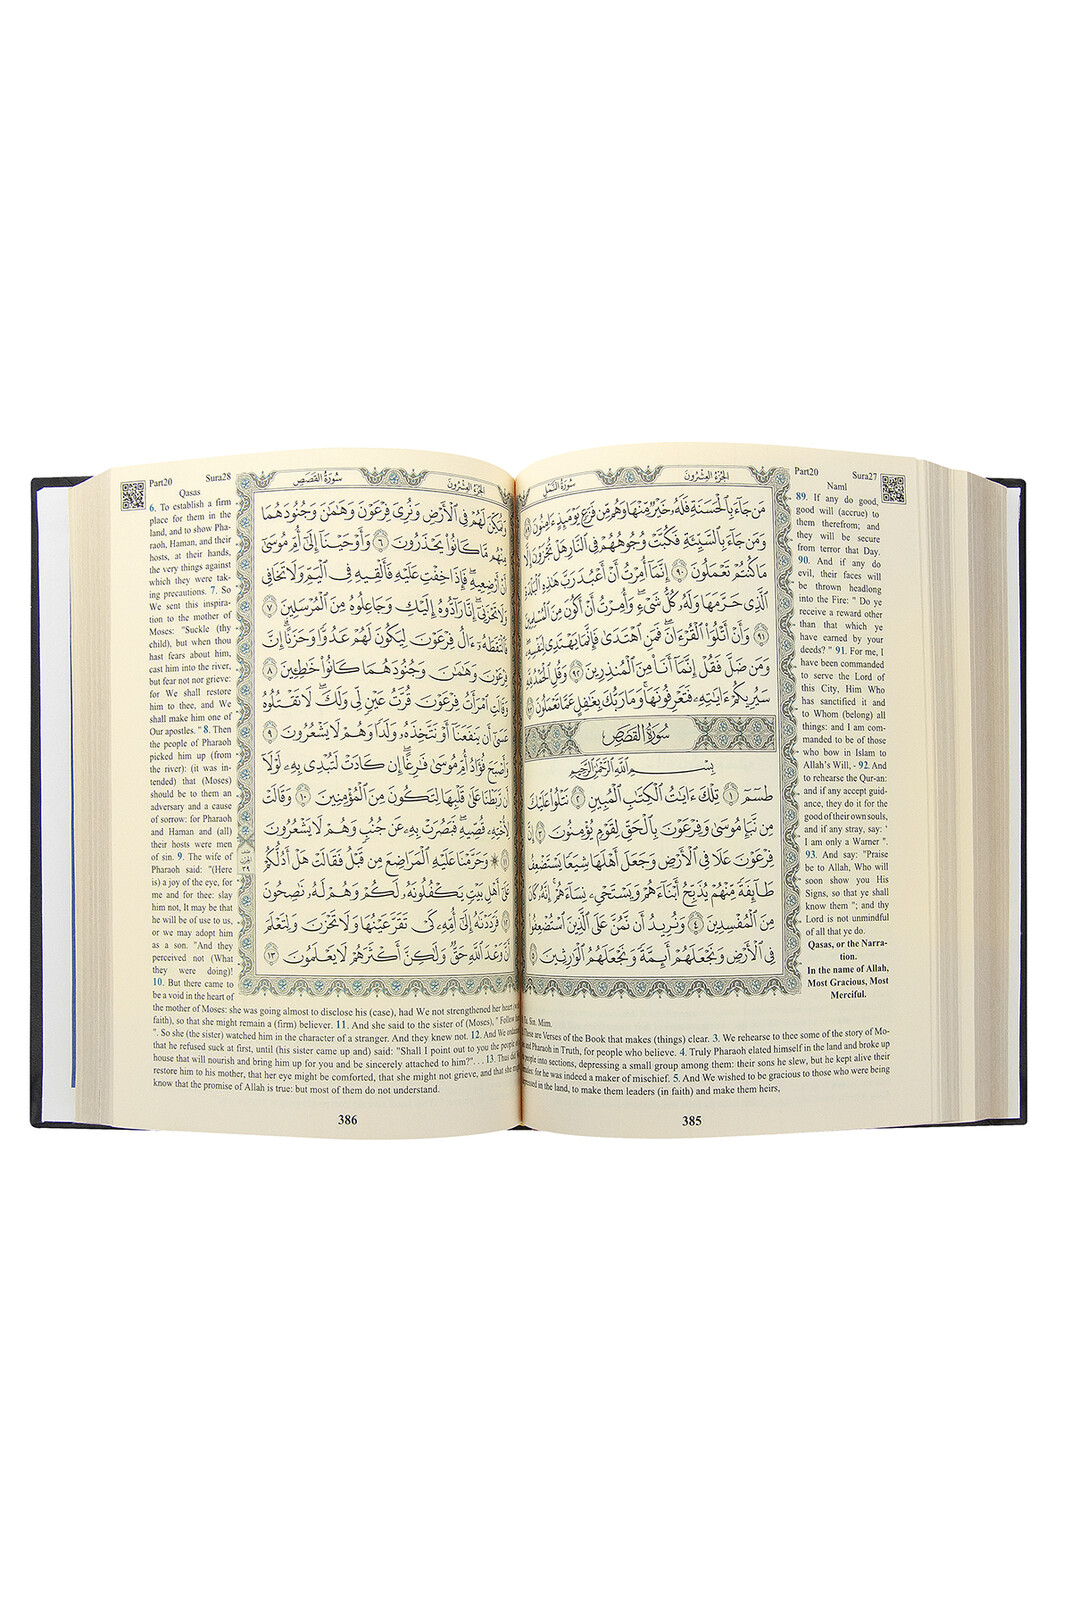 Part20 Sura27
Naml
89. If any do good,
good will (accrue) to
them therefrom; and
they will be secure
from terror that Day.
90. And if any do
evil, their faces will
be thrown headlong
into the Fire: " Do ye
receive a reward other
than that which ye
have earned by your
deeds? " 91. For me, I
have been commanded
to serve the Lord of
this City, Him Who
has sanctified it and
to Whom (belong) all
things: and I am com-
manded to be of those
who bow in Islam to
Allah's Will, - 92. And
to rehearse the Qur-an:
and if any accept guid-
ance, they do it for the
good of their own souls,
and if any stray, say: '
I am only a Warner ".
93. And say: "Praise
be to Allah, Who will
soon show you His
Signs, so that ye shall
know them "; and thy
Lord is not unmindful
of all that ye do.
Qasas, or the Narra-
tion.
In the name of Allah,
Most Gracious, Most
Merciful.
الجزء العشرون سورة النمل
مَن جَآءَ بِٱلْحَسَنَةِ فَلَهُۥ خَيْرٌ مِّنْهَا وَهُم مِّن فَزَعٍ يَوْمَئِذٍ ءَامِنُونَ ٨٩
وَمَن جَآءَ بِٱلسَّيِّئَةِ فَكُبَّتْ وُجُوهُهُمْ فِى ٱلنَّارِ هَلْ تُجْزَوْنَ إِلَّا
مَا كُنتُمْ تَعْمَلُونَ ٩٠ إِنَّمَآ أُمِرْتُ أَنْ أَعْبُدَ رَبَّ هَٰذِهِ ٱلْبَلْدَةِ
ٱلَّذِى حَرَّمَهَا وَلَهُۥ كُلُّ شَىْءٍ وَأُمِرْتُ أَنْ أَكُونَ مِنَ ٱلْمُسْلِمِينَ
٩١ وَأَنْ أَتْلُوَا۟ ٱلْقُرْءَانَ فَمَنِ ٱهْتَدَىٰ فَإِنَّمَا يَهْتَدِى لِنَفْسِهِۦ
وَمَن ضَلَّ فَقُلْ إِنَّمَآ أَنَا۠ مِنَ ٱلْمُنذِرِينَ ٩٢ وَقُلِ ٱلْحَمْدُ لِلَّهِ
سَيُرِيكُمْ ءَايَٰتِهِۦ فَتَعْرِفُونَهَا وَمَا رَبُّكَ بِغَٰفِلٍ عَمَّا تَعْمَلُونَ ٩٣
سورة القصص
بِسْمِ ٱللَّهِ ٱلرَّحْمَٰنِ ٱلرَّحِيمِ
طسٓمٓ ١ تِلْكَ ءَايَٰتُ ٱلْكِتَٰبِ ٱلْمُبِينِ ٢ نَتْلُوا۟ عَلَيْكَ
مِن نَّبَإِ مُوسَىٰ وَفِرْعَوْنَ بِٱلْحَقِّ لِقَوْمٍ يُؤْمِنُونَ ٣ إِنَّ
فِرْعَوْنَ عَلَا فِى ٱلْأَرْضِ وَجَعَلَ أَهْلَهَا شِيَعًا يَسْتَضْعِفُ
طَآئِفَةً مِّنْهُمْ يُذَبِّحُ أَبْنَآءَهُمْ وَيَسْتَحْىِۦ نِسَآءَهُمْ إِنَّهُۥ كَانَ
مِنَ ٱلْمُفْسِدِينَ ٤ وَنُرِيدُ أَن نَّمُنَّ عَلَى ٱلَّذِينَ ٱسْتُضْعِفُوا۟
فِى ٱلْأَرْضِ وَنَجْعَلَهُمْ أَئِمَّةً وَنَجْعَلَهُمُ ٱلْوَٰرِثِينَ ٥
Ta. Sin. Mim.
These are Verses of the Book that makes (things) clear. 3. We rehearse to thee some of the story of Mo-
and Pharaoh in Truth, for people who believe. 4. Truly Pharaoh elated himself in the land and broke up
people into sections, depressing a small group among them: their sons he slew, but he kept alive their
for he was indeed a maker of mischief. 5. And We wished to be gracious to those who were being
in the land, to make them leaders (in faith) and make them heirs,
385
Part20 Sura28
Qasas
6. To establish a firm
place for them in the
land, and to show Pha-
raoh, Haman, and their
hosts, at their hands,
the very things against
which they were tak-
ing precautions. 7. So
We sent this inspira-
tion to the mother of
Moses: "Suckle (thy
child), but when thou
hast fears about him,
cast him into the river,
but fear not nor grieve:
for We shall restore
him to thee, and We
shall make him one of
Our apostles. " 8. Then
the people of Pharaoh
picked him up (from
the river): (it was in-
tended) that (Moses)
should be to them an
adversary and a cause
of sorrow: for Pharaoh
and Haman and (all)
their hosts were men
of sin. 9. The wife of
Pharaoh said: "(Here
is) a joy of the eye, for
me and for thee: slay
him not, It may be that
he will be of use to us,
or we may adopt him
as a son. "And they
perceived not (What
they were doing)!
10. But there came to
be a void in the heart of
الجزء العشرون سورة القصص
وَنُمَكِّنَ لَهُمْ فِى ٱلْأَرْضِ وَنُرِىَ فِرْعَوْنَ وَهَٰمَٰنَ وَجُنُودَهُمَا
مِنْهُم مَّا كَانُوا۟ يَحْذَرُونَ ٦ وَأَوْحَيْنَآ إِلَىٰٓ أُمِّ مُوسَىٰٓ
أَنْ أَرْضِعِيهِ فَإِذَا خِفْتِ عَلَيْهِ فَأَلْقِيهِ فِى ٱلْيَمِّ وَلَا تَخَافِى
وَلَا تَحْزَنِىٓ إِنَّا رَآدُّوهُ إِلَيْكِ وَجَاعِلُوهُ مِنَ ٱلْمُرْسَلِينَ ٧
فَٱلْتَقَطَهُۥٓ ءَالُ فِرْعَوْنَ لِيَكُونَ لَهُمْ عَدُوًّا وَحَزَنًا إِنَّ
فِرْعَوْنَ وَهَٰمَٰنَ وَجُنُودَهُمَا كَانُوا۟ خَٰطِـِٔينَ ٨
وَقَالَتِ ٱمْرَأَتُ فِرْعَوْنَ قُرَّتُ عَيْنٍ لِّى وَلَكَ لَا تَقْتُلُوهُ
عَسَىٰٓ أَن يَنفَعَنَآ أَوْ نَتَّخِذَهُۥ وَلَدًا وَهُمْ لَا يَشْعُرُونَ ٩
وَأَصْبَحَ فُؤَادُ أُمِّ مُوسَىٰ فَٰرِغًا إِن كَادَتْ لَتُبْدِى بِهِۦ لَوْلَآ
أَن رَّبَطْنَا عَلَىٰ قَلْبِهَا لِتَكُونَ مِنَ ٱلْمُؤْمِنِينَ ١٠ وَقَالَتْ
لِأُخْتِهِۦ قُصِّيهِ فَبَصُرَتْ بِهِۦ عَن جُنُبٍ وَهُمْ لَا يَشْعُرُونَ
١١ وَحَرَّمْنَا عَلَيْهِ ٱلْمَرَاضِعَ مِن قَبْلُ فَقَالَتْ هَلْ أَدُلُّكُمْ
عَلَىٰٓ أَهْلِ بَيْتٍ يَكْفُلُونَهُۥ لَكُمْ وَهُمْ لَهُۥ نَٰصِحُونَ
١٢ فَرَدَدْنَٰهُ إِلَىٰٓ أُمِّهِۦ كَىْ تَقَرَّ عَيْنُهَا وَلَا تَحْزَنَ وَلِتَعْلَمَ
أَنَّ وَعْدَ ٱللَّهِ حَقٌّ وَلَٰكِنَّ أَكْثَرَهُمْ لَا يَعْلَمُونَ ١٣
the mother of Moses: she was going almost to disclose his (case), had We not strengthened her heart
faith), so that she might remain a (firm) believer. 11. And she said to the sister of (Moses), " Follow
". So she (the sister) watched him in the character of a stranger. And they knew not. 12. And We
that he refused suck at first, until (his sister came up and) said: "Shall I point out to you the people
house that will nourish and bring him up for you and be sincerely attached to him?". . . 13. Thus did
restore him to his mother, that her eye might be comforted, that she might not grieve, and that she
know that the promise of Allah is true: but most of them do not understand.
386